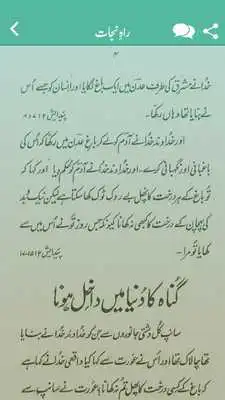 راہِ نجات
۳
خدا نے مشرق کی طرف عدن میں ایک باغ لگایا اور انسان کو جسے اُس
نے بنایا تھا وہاں رکھا۔ پیدایش ۲:۸
اور خداوند خدا نے آدم کو لے کر باغِ عدن میں رکھا کہ اُس کی
باغبانی اور نگہبانی کرے۔ اور خداوند خدا نے آدم کو حکم دیا اور کہا کہ
تو باغ کے ہر درخت کا پھل بے روک ٹوک کھا سکتا ہے لیکن نیک و بد
کی پہچان کے درخت کا کبھی نہ کھانا کیونکہ جس روز تو نے اُس میں سے
کھایا تو مرا۔ پیدایش
گناہ کا دُنیا میں داخل ہونا
سانپ کُل دشتی جانوروں سے جن کو خداوند خدا نے بنایا
تھا چالاک تھا اور اُس نے عورت سے کہا کیا واقعی خدا نے کہا ہے
کہ باغ کے کسی درخت کا پھل تم نہ کھانا؟ عورت نے سانپ سے